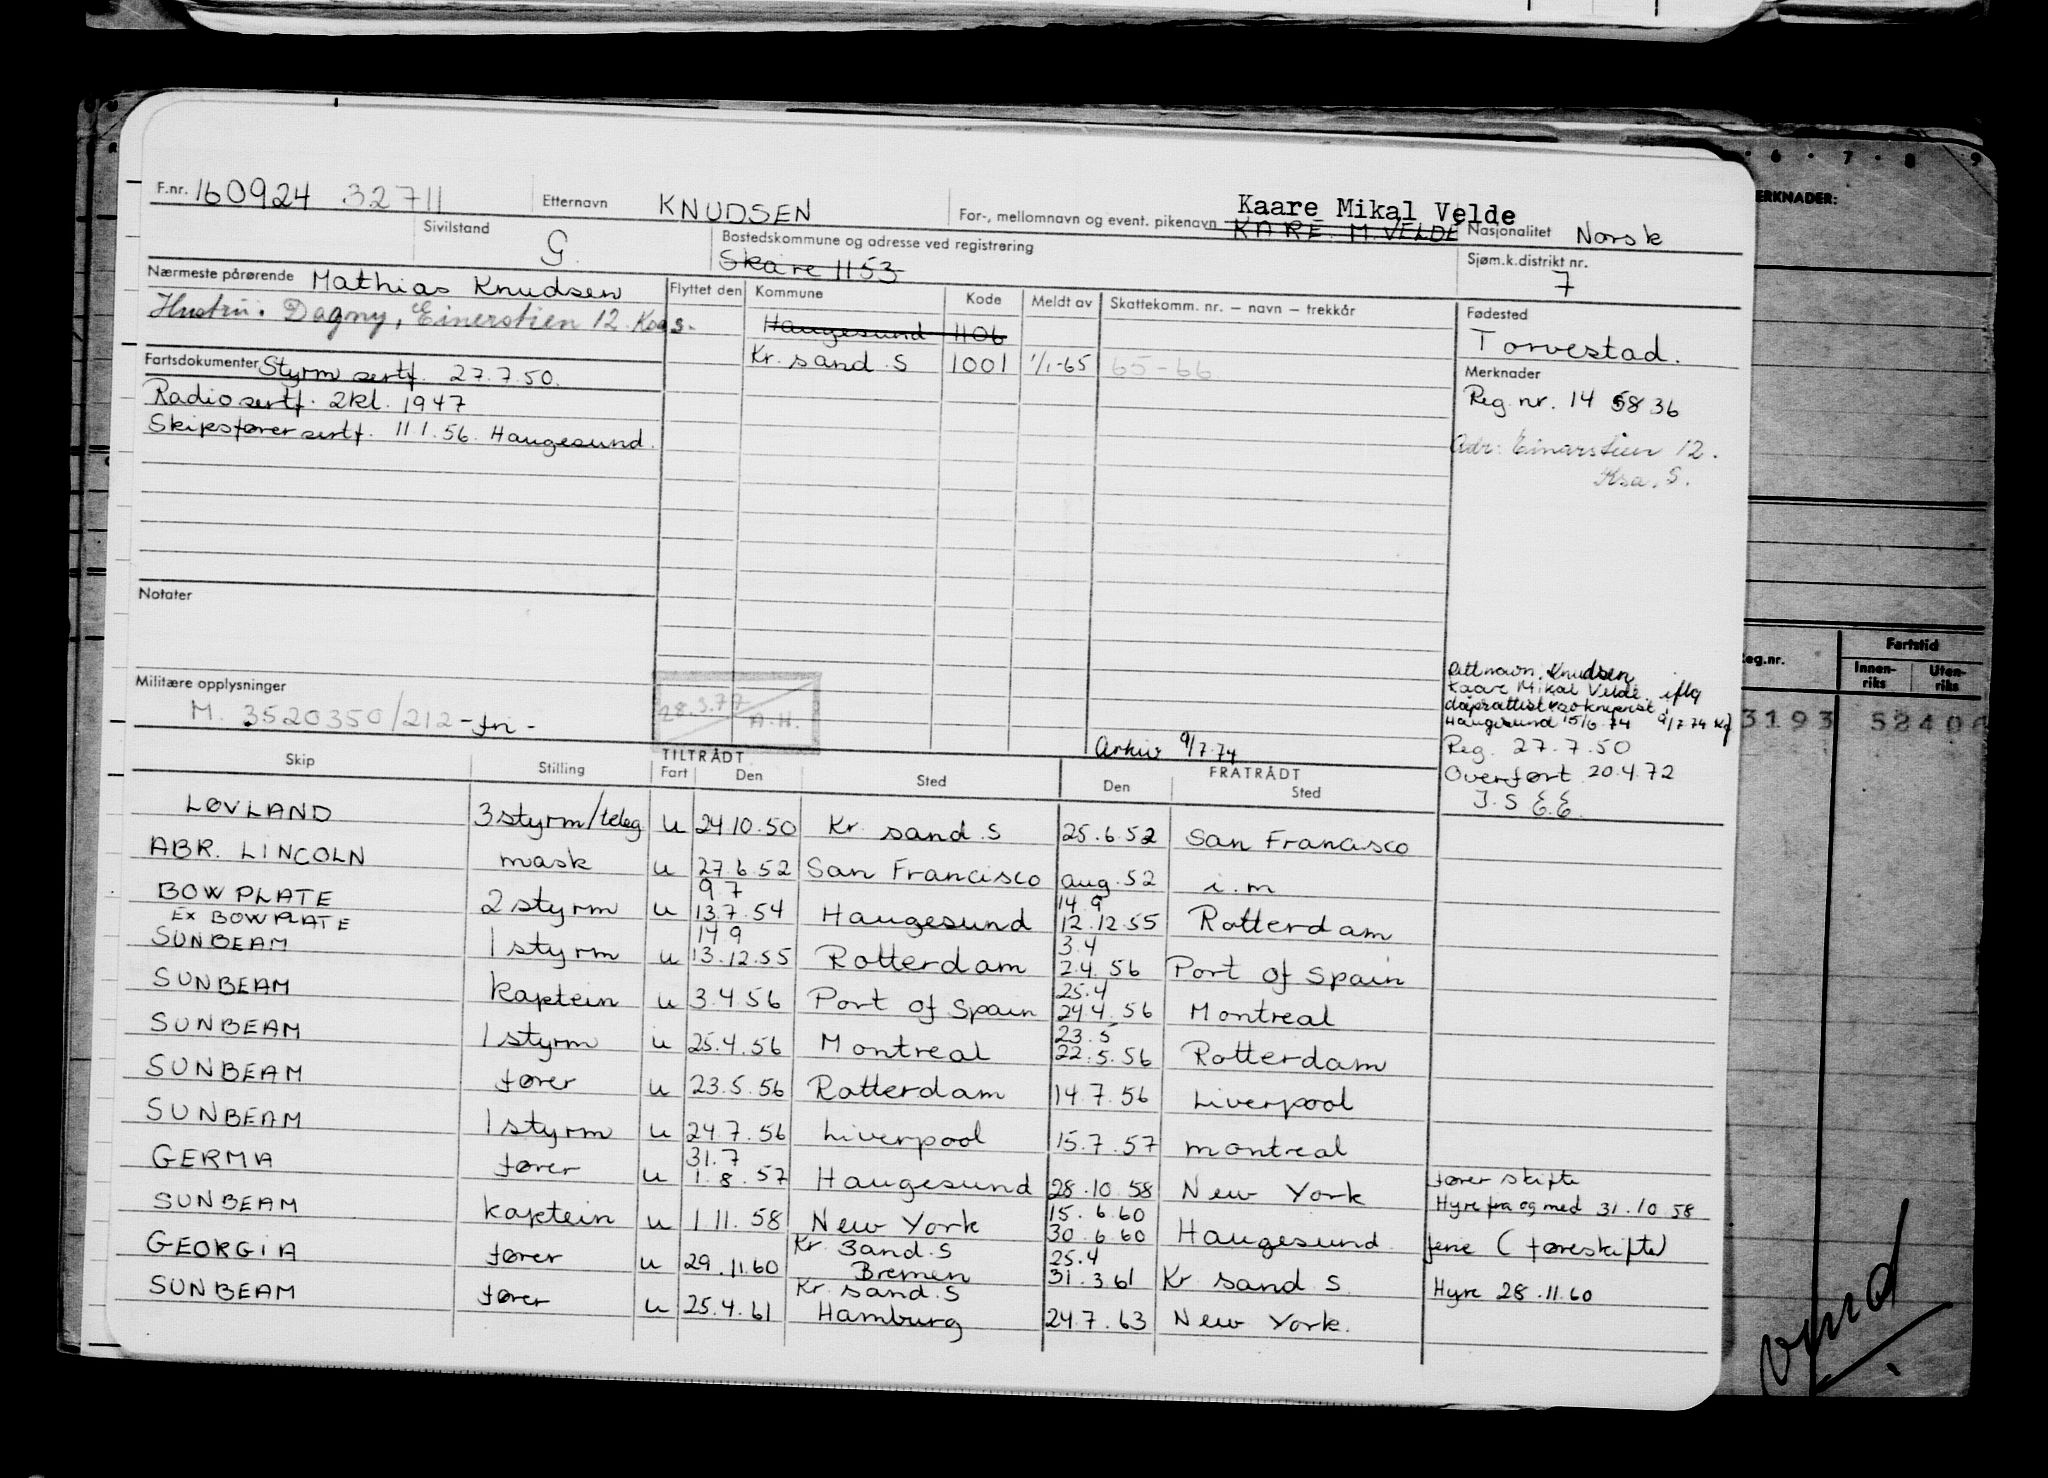 F.nr. 160924 32711 Etternavn KNUDSEN For-, mellomnavn og event. pikenavn Kaare Mikal Velde
KARE M. VELDE Nasjonalitet Norsk
Sivilstand G. Bostedskommune og adresse ved registrering Skåre 1153 Sjøm.k.distrikt nr. 7
Nærmeste pårørende Mathias Knudsen
Hustru: Dagny, Einerstien 12.
Flyttet den Kommune Kode Meldt av Skattekomm. nr. — navn — trekkår
Haugesund 1106
Kr. sand. S 1001 1/1-65 65-66
Fødested
Torvestad.
Fartsdokumenter Styrm sertf. 27.7.50.
Radiosertf. 2kl. 1947
Skipsførersertf. 11 1.56. Haugesund.
Merknader
Reg. nr. 14 5836
Adr: Einarstien 12.
Ksa. S.
Notater
Militære opplysninger
M. 3520350/212 - fri -
28.3.77
A.H.
Arkiv 9/7.74
Rett navn: Knudsen
Kaare Mikal Velde iflg
Haugesund 15/6 74 9/7 74
Reg. 27.7.50
Overført 20.4.72
J.S E.E.
Skip Stilling TILTRÅDT Fart Den Sted FRATRÅDT Den Sted
LØVLAND 3styrm/teleg u 24.10.50 Kr. sand.S 25.6.52 San Francisco
ABR. LINCOLN mask u 27.6.52 San Francisco aug.52 i.m
BOW PLATE 2styrm u 9 7 13.7.54 Haugesund 14 9 12.12.55 Rotterdam
EX BOWPLATE
SUNBEAM 1styrm u 14 9 13.12.55 Rotterdam 3.4 2.4.56 Port of Spain
SUNBEAM kaptein u 3.4.56 Port of Spain 25.4 24.4.56 Montreal
SUNBEAM 1styrm u 25.4.56 Montreal 23.5 22.5.56 Rotterdam
SUNBEAM fører u 23.5.56 Rotterdam 14.7.56 Liverpool
SUNBEAM 1styrm u 24.7.56 Liverpool 15.7.57 montreal
GERMA fører u 31.7 1.8.57 Haugesund 28.10.58 New York fører skifte
Hyre fra og med 31.10 58
SUNBEAM kaptein u 1 11.58 New York 15.6.60 30.6.60 Haugesund. ferie (føreskifte)
GEORGIA fører u 29.11.60 Kr. Sand.S Bremen 25.4 31.3.61 Kr sand S. Hyre 28.11.60
SUNBEAM fører u 25.4.61 Kr. sand.S Hamburg 24.7.63 New York.
ERKNADER:
eg.nr. Fartstid
Innen-riks Uten-riks
3193 5240